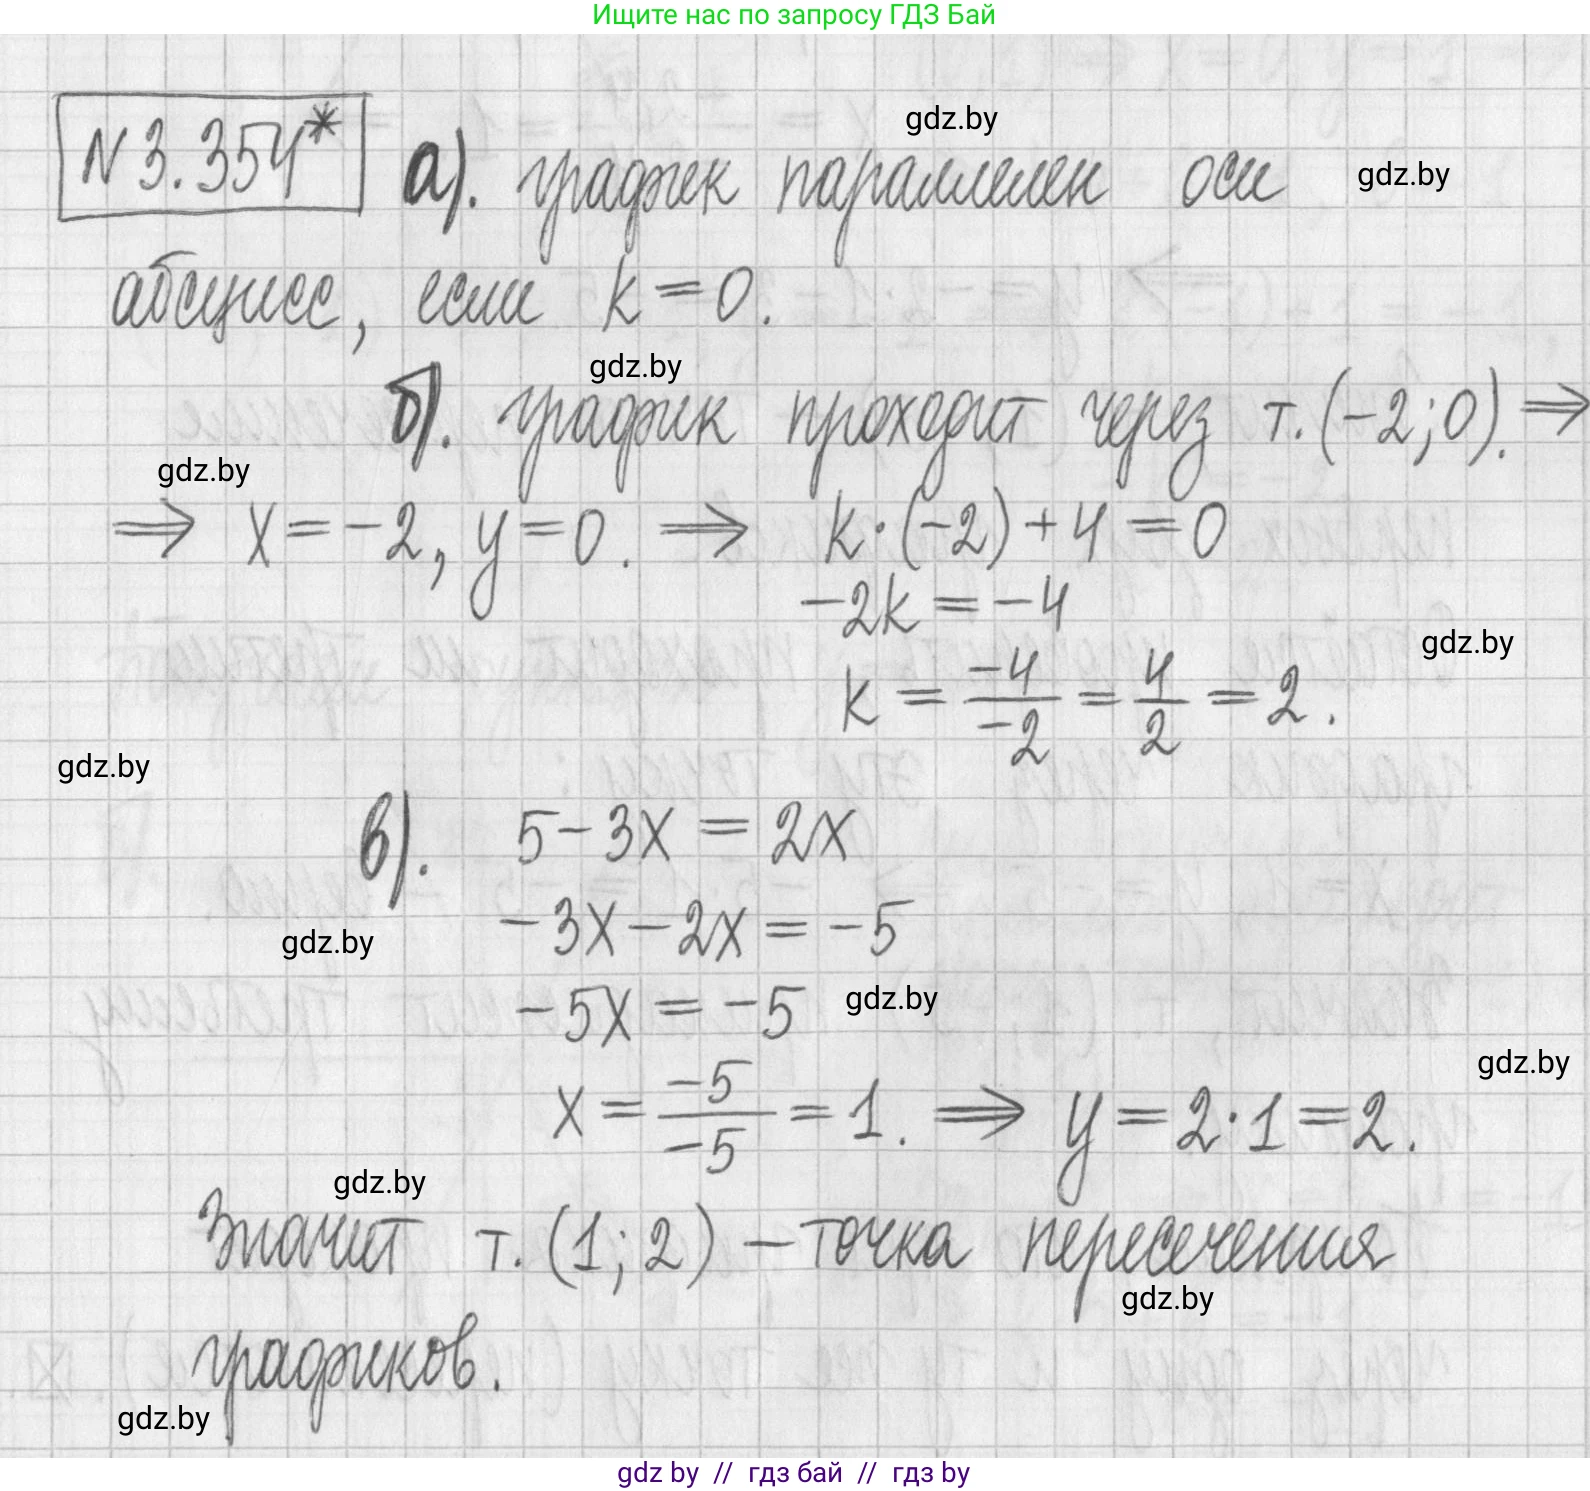 Ищите нас по запросу ГДЗ Бай
gdz.by
N 3.354* а). график параллелен оси
gdz.by
абсцисс, если k = 0.
gdz.by
б). график проходит через т. (-2; 0). ⇒
gdz.by
⇒ x = -2, y = 0. ⇒ k·(-2) + 4 = 0
-2k = -4
gdz.by
k = -4/-2 = 4/2 = 2.
gdz.by
в). 5 - 3x = 2x
-3x - 2x = -5
gdz.by
-5x = -5
gdz.by
gdz.by
x = -5/-5 = 1. ⇒ y = 2·1 = 2.
gdz.by
Значит т. (1; 2) - точка пересечения
gdz.by
графиков.
gdz.by
gdz by // гдз бай // гдз by